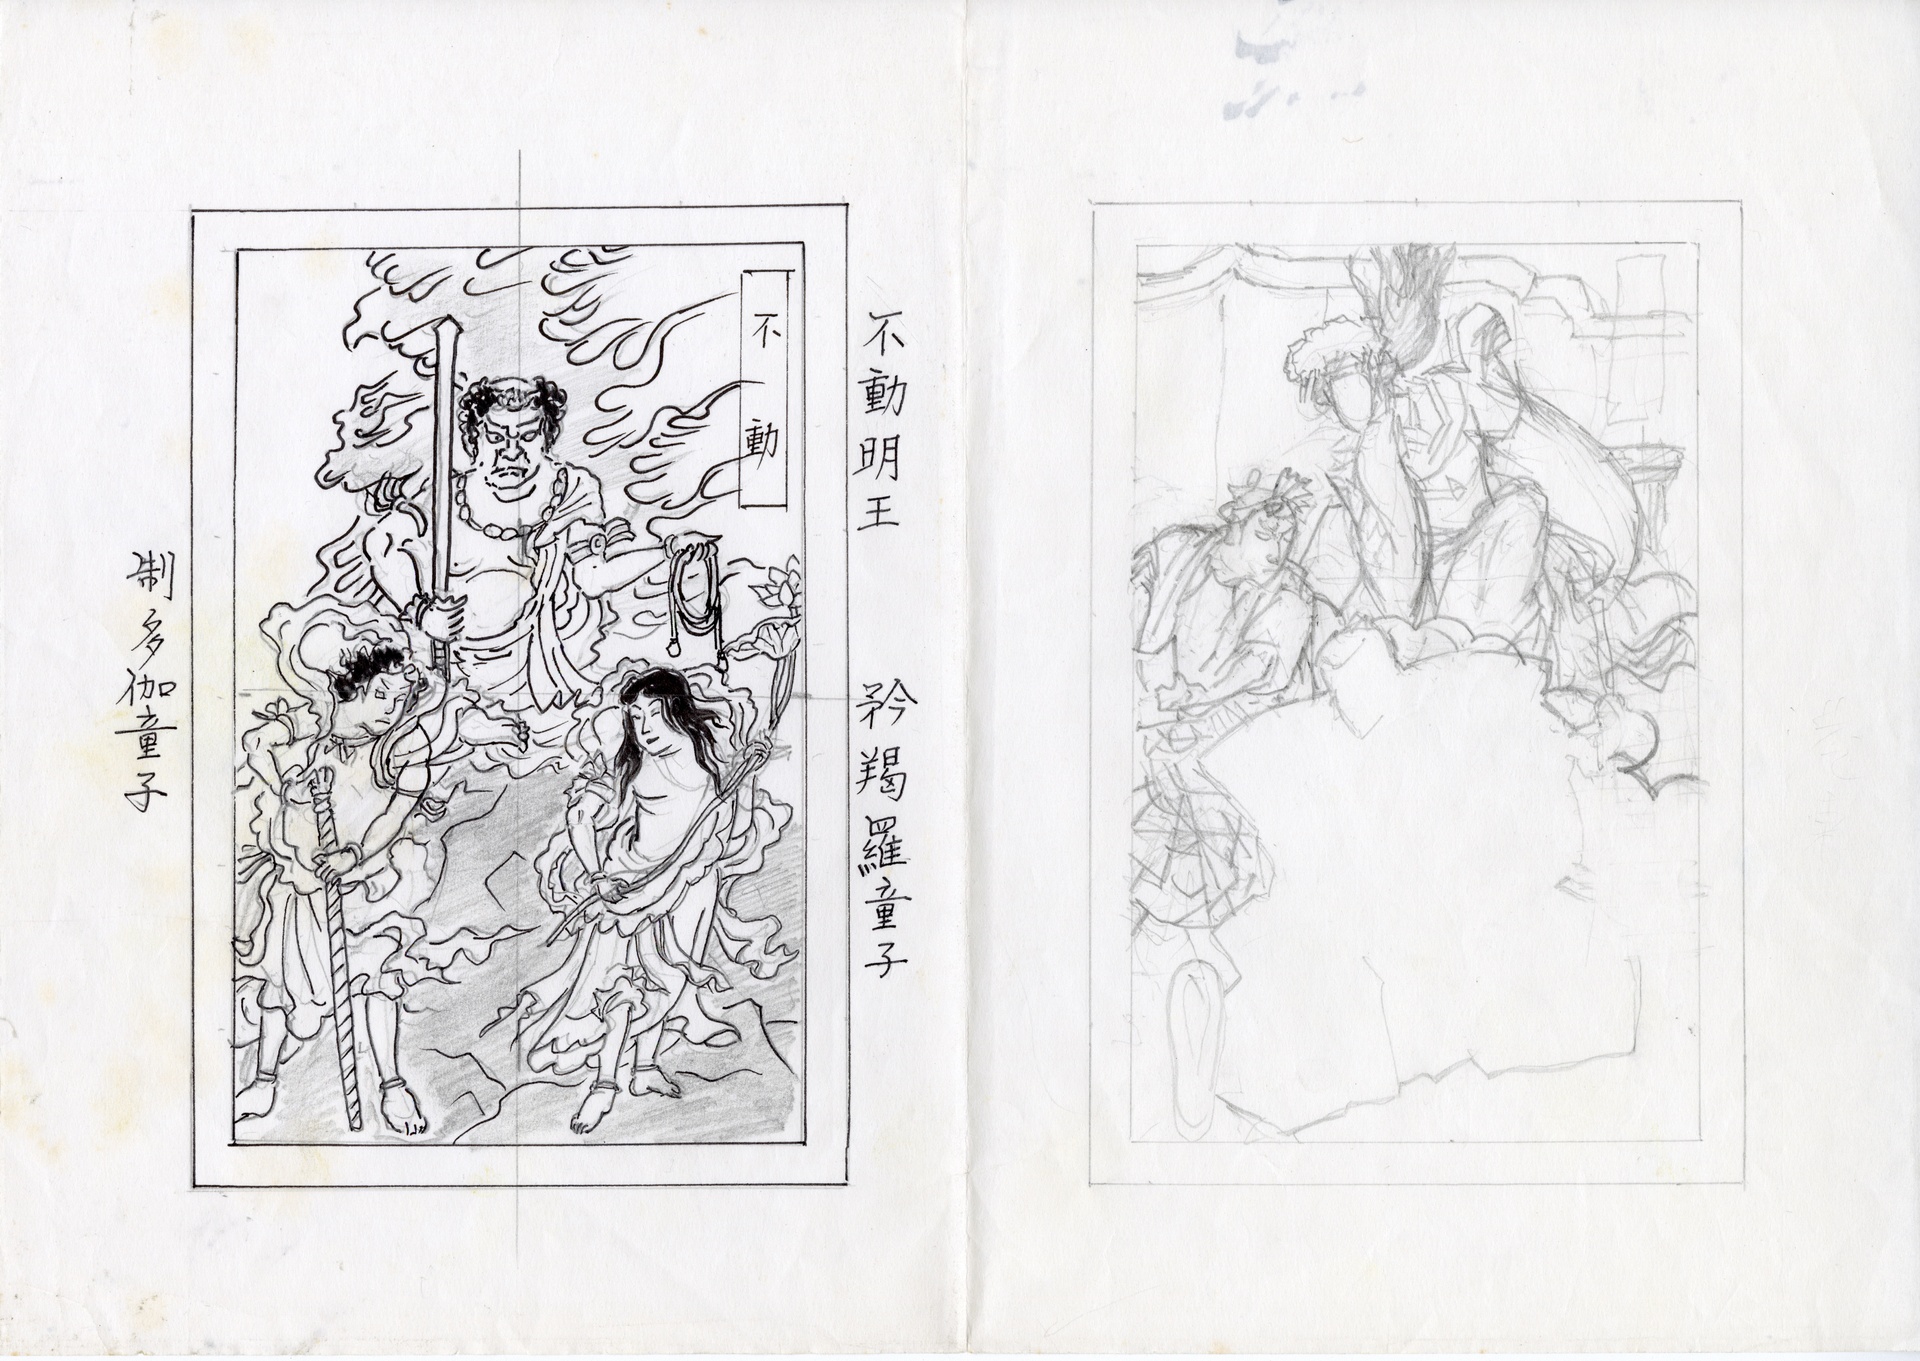 不動明王
矜羯羅童子
不動
制多伽童子